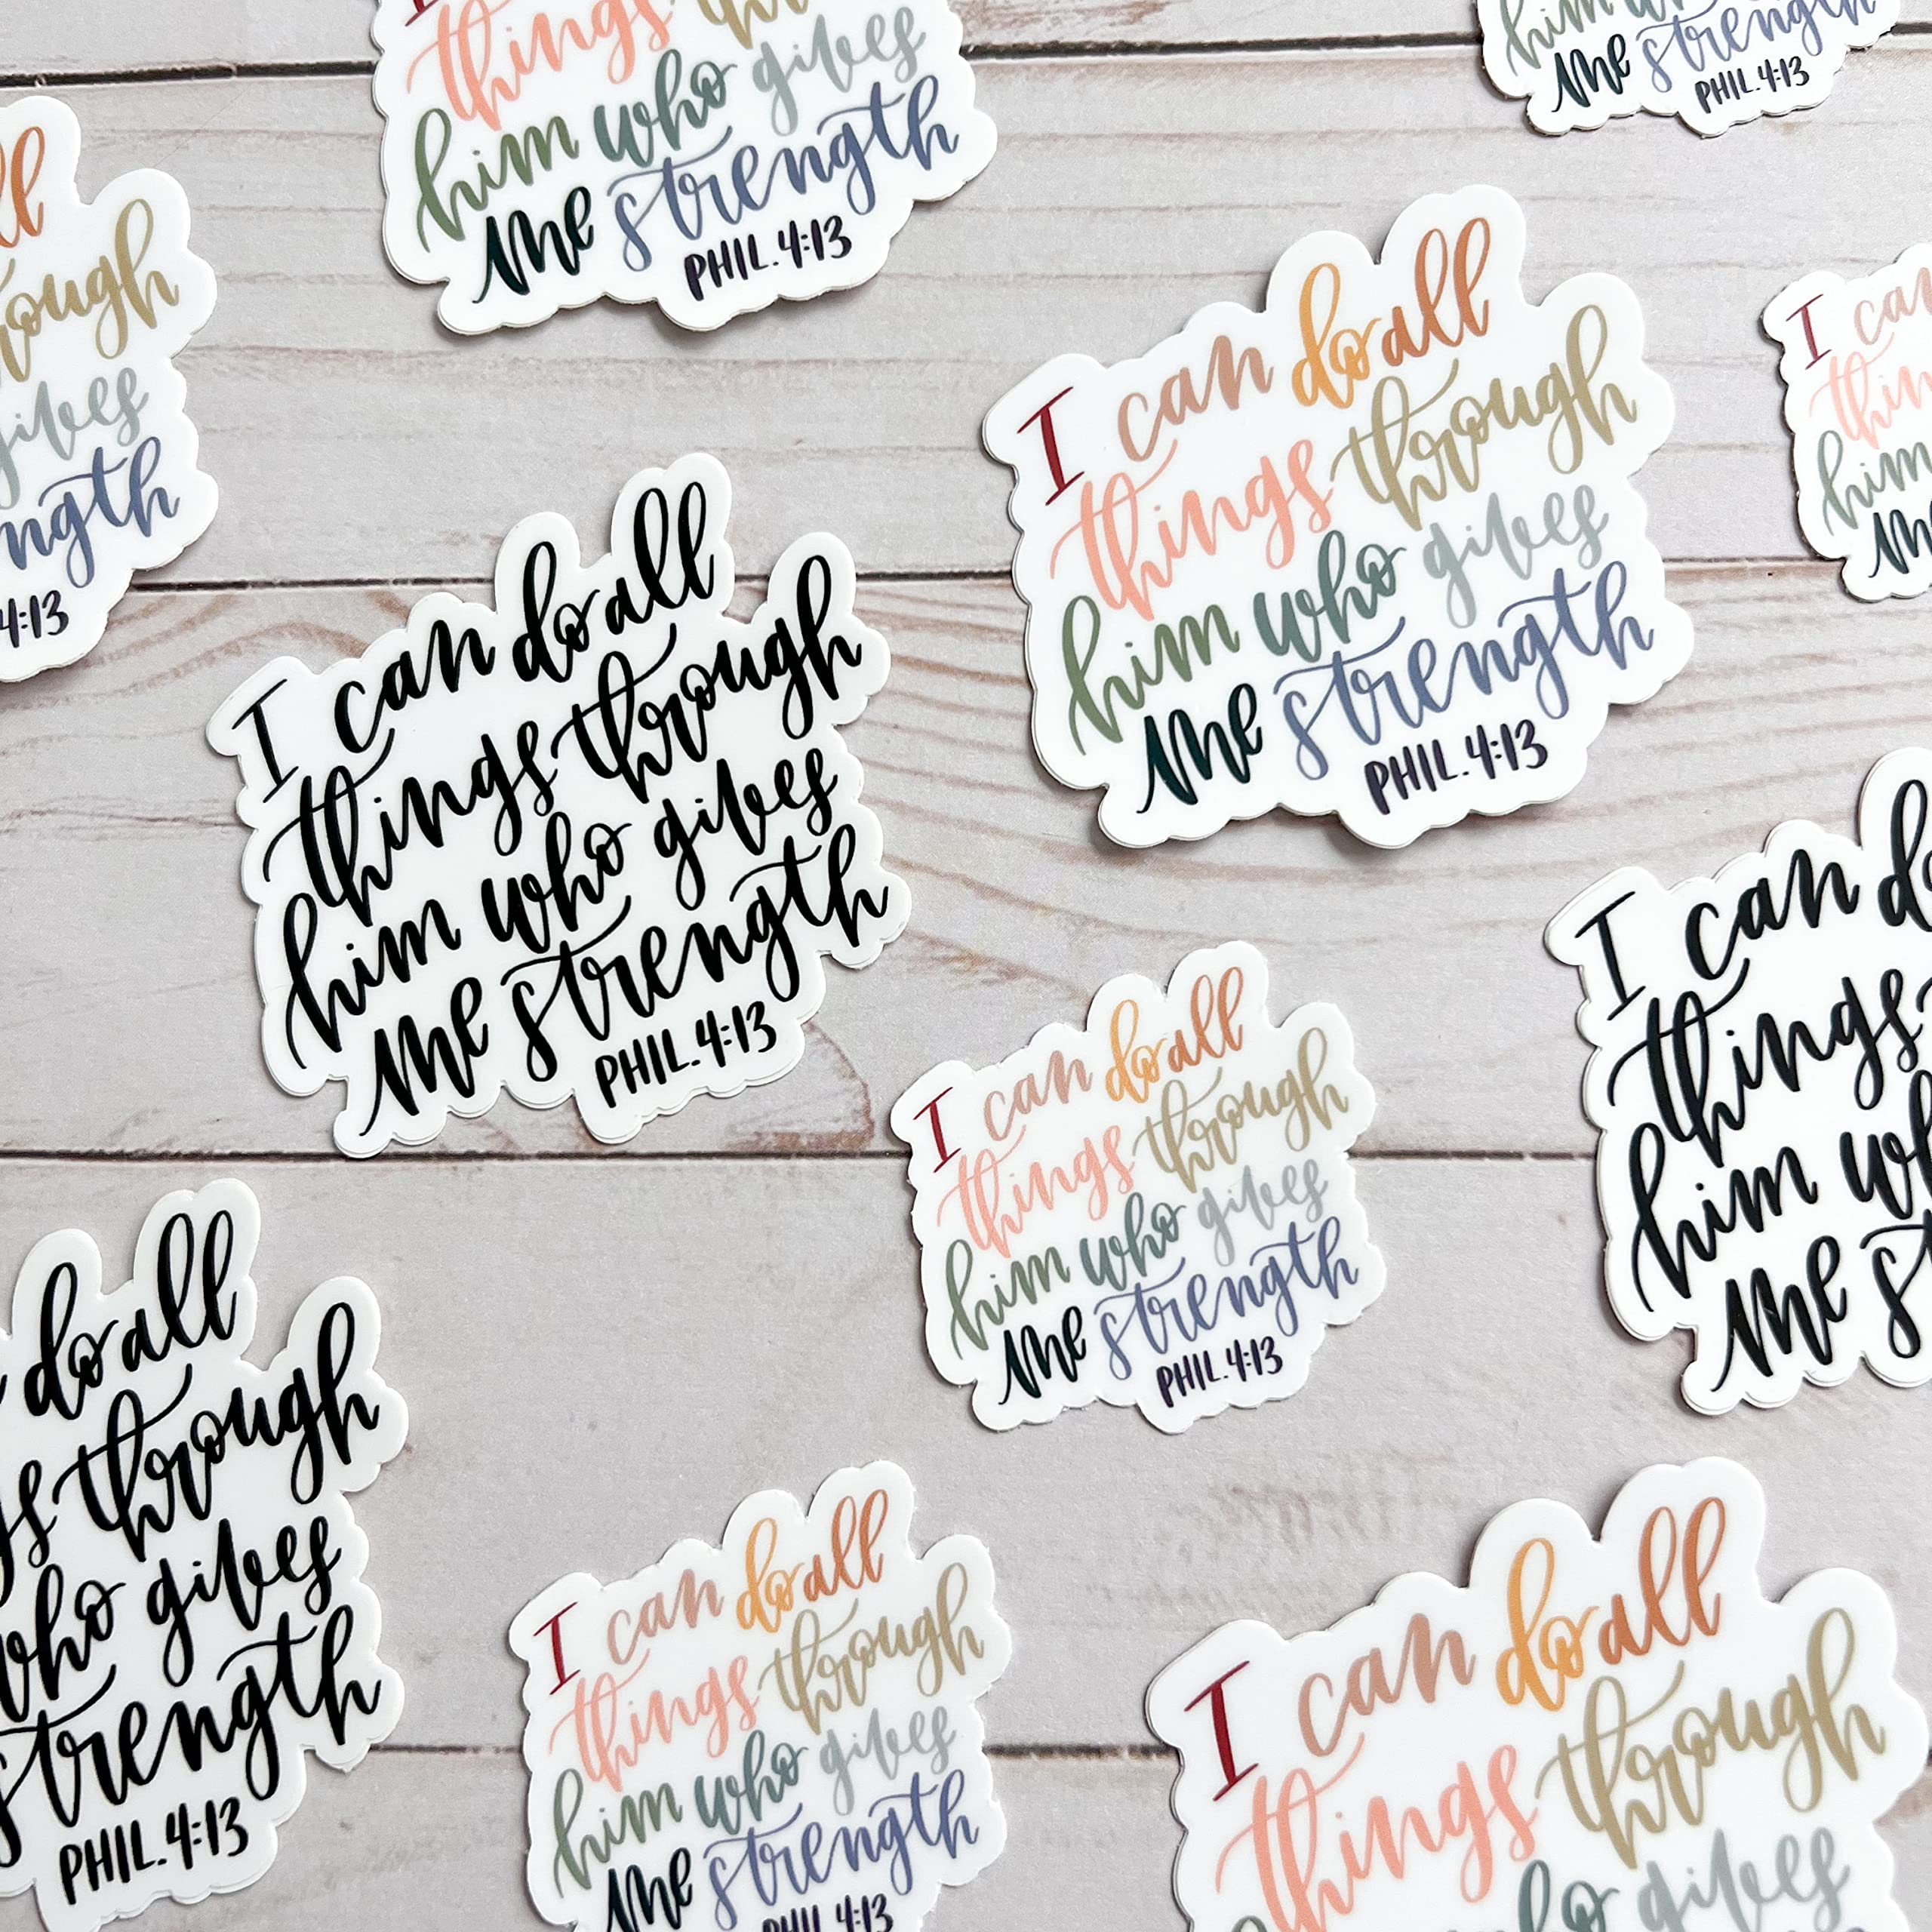 things
him who gives
me strength
PHIL. 4:13
him
me strength
PHIL. 4:13
gives
4:13
I can do all
things through
him who gives
me strength
PHIL. 4:13
I can
him
me
I can do all
things through
him who gives
me strength
PHIL. 4:13
I can do all
things through
him who gives
me strength
PHIL. 4:13
I can do
things
him
me
do all
through
who gives
strength
PHIL. 4:13
I can do all
things through
him who gives
me strength
PHIL. 4:13
I can do all
things through
gives